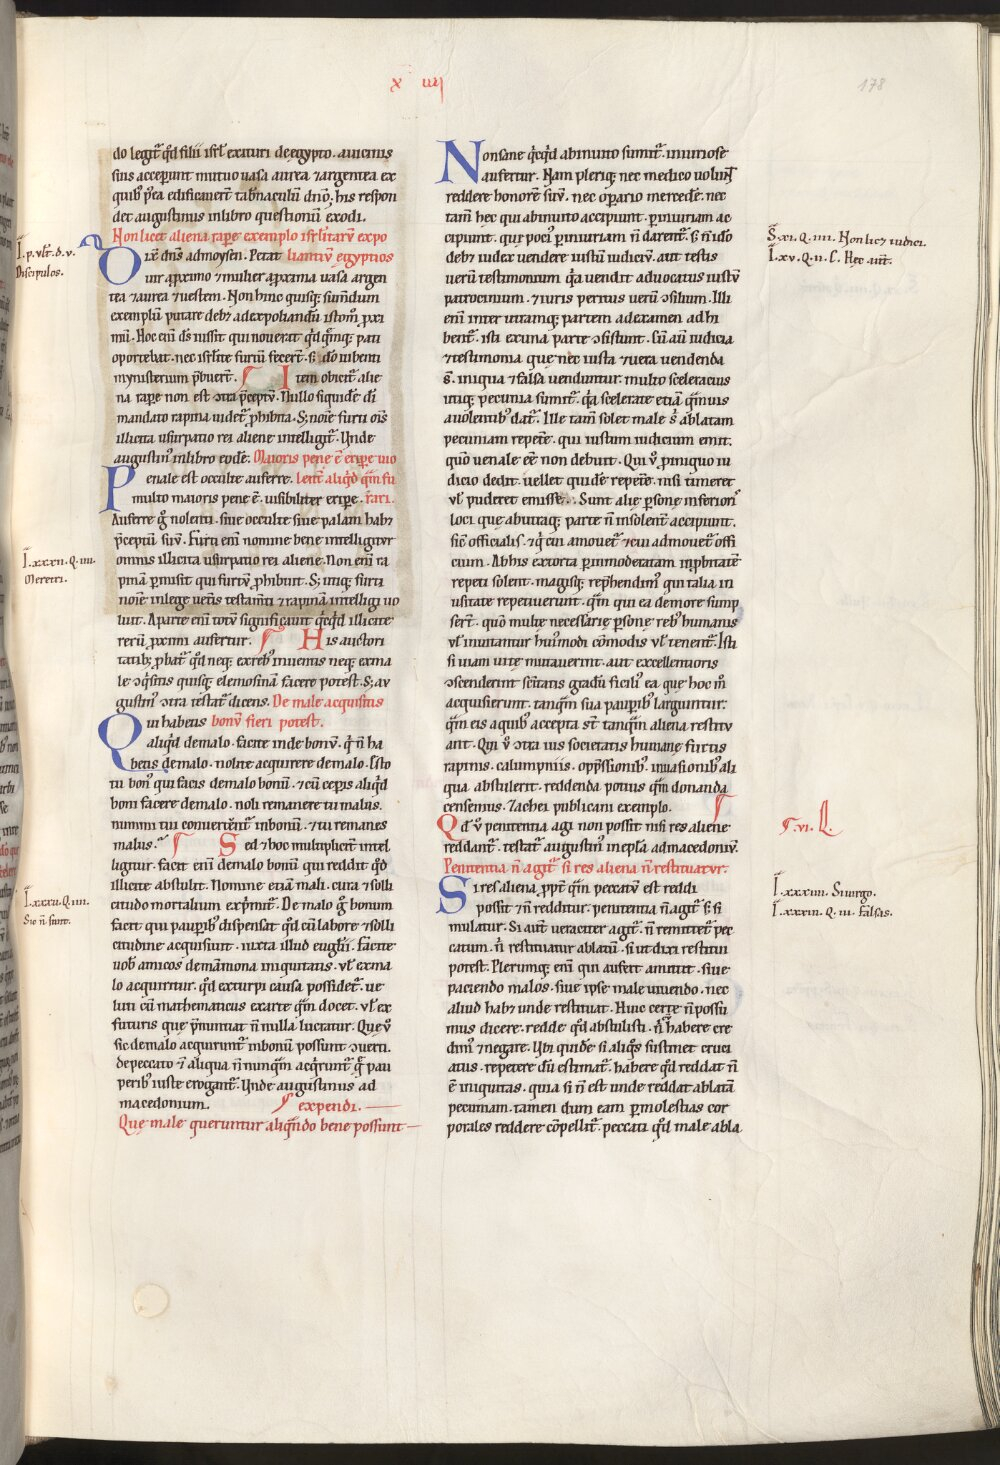 x iiii
178
do legit̄ qđ filii isrl̄ exituri de egypto. a uicinis
suis acceperunt mutuo uasa aurea ⁊ argentea ex
quibꝰ p̄ea edificauerт̄ tab̄naculū dn̄o; his respon
det augustinus in libro questionū exodi.
Non licet aliena rape exemplo isrl̄itarū expo
Dixit dn̄s ad moysen. Petat liantiū egyptios
uir a ꝓximo ⁊ mulier a ꝓxima uasa argen
tea ⁊ aurea ⁊ uestem. Non hinc quisq; sumdum
exemplū putare debꝫ ad expoliandū isto m̄ ꝓxi
mū. Hoc enī dš iussit qui nouerat qđ quēq; pati
oportebat. nec isrl̄ite furtū fecerт̄. s; dō iubenti
mynisterium p̄buerт̄. Item obicit̄ alie
na rape non est ↄtra p̄ceptū. Nullo siquidē di
mandato rapina uidet̄ ꝓhibita. S; noīe furti oīs
illicita usurpatio rei aliene intelligit̄. Unde
augustinꝰ in libro eodē. Maioris pene ē eripe uio
Penale est occulte auferre. lent̄ aliqđ quā fu
multo maioris pene ē. uisibiliter eripe. rari.
Auferre ḡ nolenti. siue occulte siue palam habꝫ
p̄ceptū suū. Furti enī nomine bene intelligitur
omnis illicita usurpatio rei aliene. Non enī ra
pinā pmisit qui furtū ꝓhibuit. S; utiq; furti
noīe in lege ueteris testam̄ti ⁊ rapinā intelligi uo
luit. A parte enī totū significauit quicqđ illicite
rerū ꝓximi aufertur. His auctori
tatibꝫ ꝓbat̄ qđ neq; ex rebꝰ inuentis neq; ex ma
le ↄquisitis quisq; elemosinā facere potest. S; au
gustinꝰ ↄtra testat̄ dicens. De male acquisitis
Qui habetis bonū fieri potest.
aliqđ de malo. facite inde bonū. qi n̄ ha
betis de malo. nolite acquirere de malo. Esto
tu bonꝰ qui facis de malo bonū. ⁊ cū ceperis aliqđ
boni facere de malo. noli remanere tu malus.
nummi tui conuertent̄ in bonū. ⁊ tu remanes
malus. Sed ⁊ hoc multiplicit̄ intel
ligitur. facit enī de malo bonū qui reddit qđ
illicite abstulit. Nomine etiā mali. cura ⁊ solli
citudo mortalium exp̄mit̄. De malo ḡ bonum
facit qui paupibꝰ dispensat qđ cū labore ⁊ solli
citudine acquisiuit. iuxta illud eugl̄ii. Facite
uobꝰ amicos de māmona iniquitatis. ul̄ ex ma
lo acquiritur. qđ ex turpi causa possidet̄. ue
luti cū mathematicus ex arte quā docet. ul̄ ex
futuris que p̄nuntiat n̄ nulla lucratur. Que ū̄
sic de malo acquirunt̄ in bonū possunt ↄuerti.
de peccato ⁊ aliqua n̄ nunquā acq̄runt̄ que pau
peribꝰ iuste erogant̄. Unde augustinus ad
macedonium. expendi.
Que male queruntur aliquādo bene possunt
Non sane quicqđ ab inuito sumit̄. iniuriose
aufertur. Nam pleriq; nec medico uolunt
reddere honorē suū. nec opario mercedē. nec
tam̄ hec qui ab inuito accipiunt. p iniuriam ac
cipiunt. que pociꝰ p iniuriam n̄ darent̄. s; n̄ ido
debꝫ iudex uendere iustū iudiciū. aut testis
uerū testimonium. qa uendit aduocatus iustū
patrocinium. ⁊ iuris peritus uerū ↄsilium. Illi
enī inter utramq; partem ad examen adhi
bent̄. isti ex una parte ↄsistunt. Cū aū iudicia
⁊ testimonia que nec iusta ⁊ uera uendenda
s̄. iniqua ⁊ falsa uenduntur. multo sceleratius
utiq; pecunia sumit̄. qa scelerate etiā quāuis
a uolentibꝰ dat̄. Ille tam̄ solet male s; ablatam
pecuniam repete. qui iustum iudicium emit.
quō uenale eē non debuit. Qui ū̄ p iniquo iu
dicio dedit. uellet quidē repete. nisi timeret
ul̄ puderet emisse. Sunt alie psone inferiorꝰ
loci que ab utraq; parte n̄ insolent̄ accipiunt.
sic̄ officialis. ⁊ q̄ cui amouet̄ ⁊ cui admouet̄ offi
cium. Ab his extorta p inmoderatam inprobitatē
repeti solent. magisq; rep̄hendim̄ qui talia in
usitate repetiuerunt. quā qui ea de more sump
serт̄. quō multe necessarie psone rebꝰ humanis
ul̄ inuitantur huiꝰmodi cōmodis ul̄ tenent̄. Isti
si uiam uite mutauerint. aut excellentioris
ↄscenderint sc̄itatis gradū facili ea que hoc mō
acquisierunt. tanquā sua paupibꝰ larguntur.
quā eis a quibꝰ accepta st̄ tanquā aliena restitu
ant. Qui ū̄ ↄtra ius societatis humane furtis
rapinis. calumpniis. opp̄ssionibꝰ. inuasionibꝰ ali
qua abstulerit. reddenda potius quā donanda
censemus. Zachei publicani exemplo.
Qđ ū̄ penitentia agi non possit nisi res aliene
reddant̄. testat̄ augustinꝰ in epl̄a ad macedoniū.
Penitentia n̄ agit̄ si res aliena n̄ restituatur.
Si res aliena ꝓpt̄ quā peccatū est reddi
possit ⁊ n̄ redditur. penitentia n̄ agit̄ s; si
mulatur. Si aut̄ ueraciter agit̄. n̄ remittet̄ pec
catum. n̄ restituatur ablatū. si ut dixi restitui
potest. Plerumq; enī qui aufert amittit. siue
paciendo malos. siue ipse male uiuendo. nec
aliud habꝫ unde restituat. Hunc certe n̄ possu
mus dicere. redde qđ abstulisti. n̄ habere cre
dim̄ ⁊ negare. Ubi quidē si aliqs sustinet cruci
atus. repetere dū estimat̄. habere qđ reddat n̄
ē iniquitas. quia si n̄ est unde reddat ablatā
pecuniam. tamen dum eam p molestias cor
porales reddere cōpellit̄. peccati qđ male abla
I. p. ult. d. v.
Discipulos.
I. xxxii. Q. iiii.
Meretri.
I. xxxii. Q. iiii.
Sic n̄ sunt.
S̄. xi. Q. iii. Non licꝫ iudici.
I. xv. Q. ii. C. Hec aut̄.
C. vi. Q.
I. xxxiiii. Si uirgo.
I. xxxiii. Q. iii. falsas.